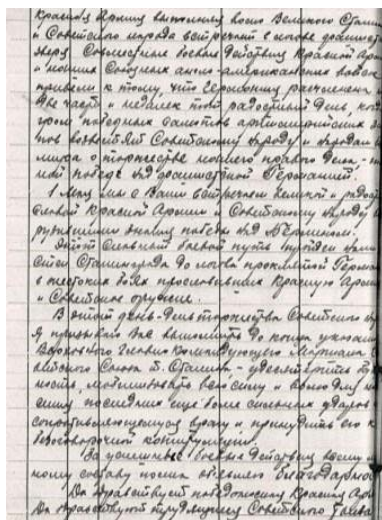 Красная Армия выполнила волю Великого Стали
и Советского народа встречает в логове фашистс
зверя. Совместные боевые действия Красной Арм
и наших союзных англо-американских войск
привели к тому, что Германия расчленена
две части и недалек тот радостный день, ког
гром победных салютов артиллерийских за
пов возвестят Советскому народу и народам
мира о торжестве нашего правого дела -
ной победе над фашистской Германией.
1 Мая мы с Вами встречаем великой и радос
славой Красной Армии и Советскому народу
рузившими знамя победы над Берлином.
Этот славный боевой путь пройден нами
стен Сталинграда до логова проклятой Герман
в жестоких боях прославивших Красную Арм
и Советское оружие.
В этот день - день торжества Советского
Я призываю Вас выполнить до конца указание
Верховного Главнокомандующего Маршала
ветского Союза т. Сталина - удесятерить
ность, мобилизовать всю силу и волю для
сения последних еще более сильных ударов
сопротивляющемуся врагу и принудить его к
безоговорочной капитуляции.
За успешные боевые действия всему
ному составу полка объявляю благодарнос
Да здравствует победоносная Красная Арм
Да здравствуют трудящиеся Советского Союза